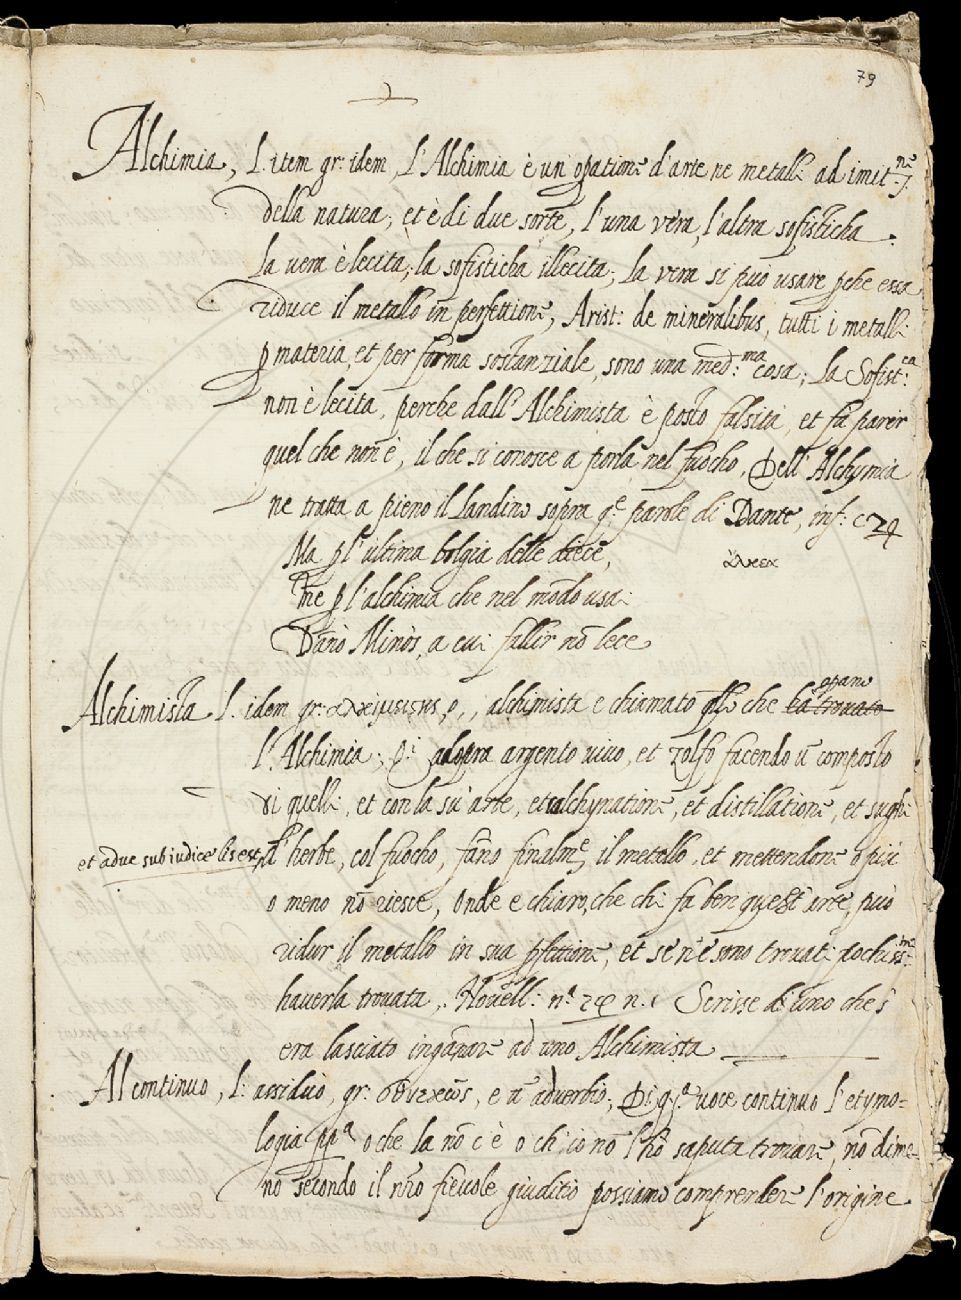 79
Alchimia, L: item gr: idem, L'Alchimia è un' opatione d'arte ne metalli ad imit.ne
della natura, et è di due sorte, l'una vera, l'altra sofisticha.
La vera è lecita, la sofisticha illecita, la vera si può usare pche essa
riduce il metallo in perfettione, Arist: de mineralibus, tutti i metalli
p materia, et per forma sostanziale, sono una med:ma cosa; la Sofist:ca
non è lecita, perche dall' Alchimista è posto falsità, et fa parer
quel che non è, il che si conosce a porla nel fuocho, Dell' Alchymia
ne tratta a pieno il Landino sopra q.e parole di Dante, inf: c 29
Ma p l'ultima bolgia delle diece,
me p l'alchimia che nel mōdo usai
Dānò Minòs, a cui fallir nō lece
Alchimista L: idem gr: alchimista e chiamato qllo che ha trouato opano
l'Alchimia; adopra argento vivo, et zolfo facendo ū composto
di quelli, et con la su' arte, et calchynatione, et distillatione, et sughi
et adue sub iudice lis est, d' herbe, col fuocho, fāno finalm.e il metello, et mettendone o più
o meno nō riesce, Onde e chiaro, che chi fa ben quest' arte, può
ridur il metallo in sua pfettione, et se ne sono trouati pochiss:mi
hauerla trouata, Nouell: n. Scrisse di uno che s'
era lasciato ingānare ad uno Alchimista
Al continuo, L: assiduò, gr: e ū adverbio; Di q.a uoce continuo l'etymo-
logia o che la nō c'è o ch'io no l'hò saputa trovare, nō dime-
no secondo il nrō fievole giuditio possiamo comprendere l'origine